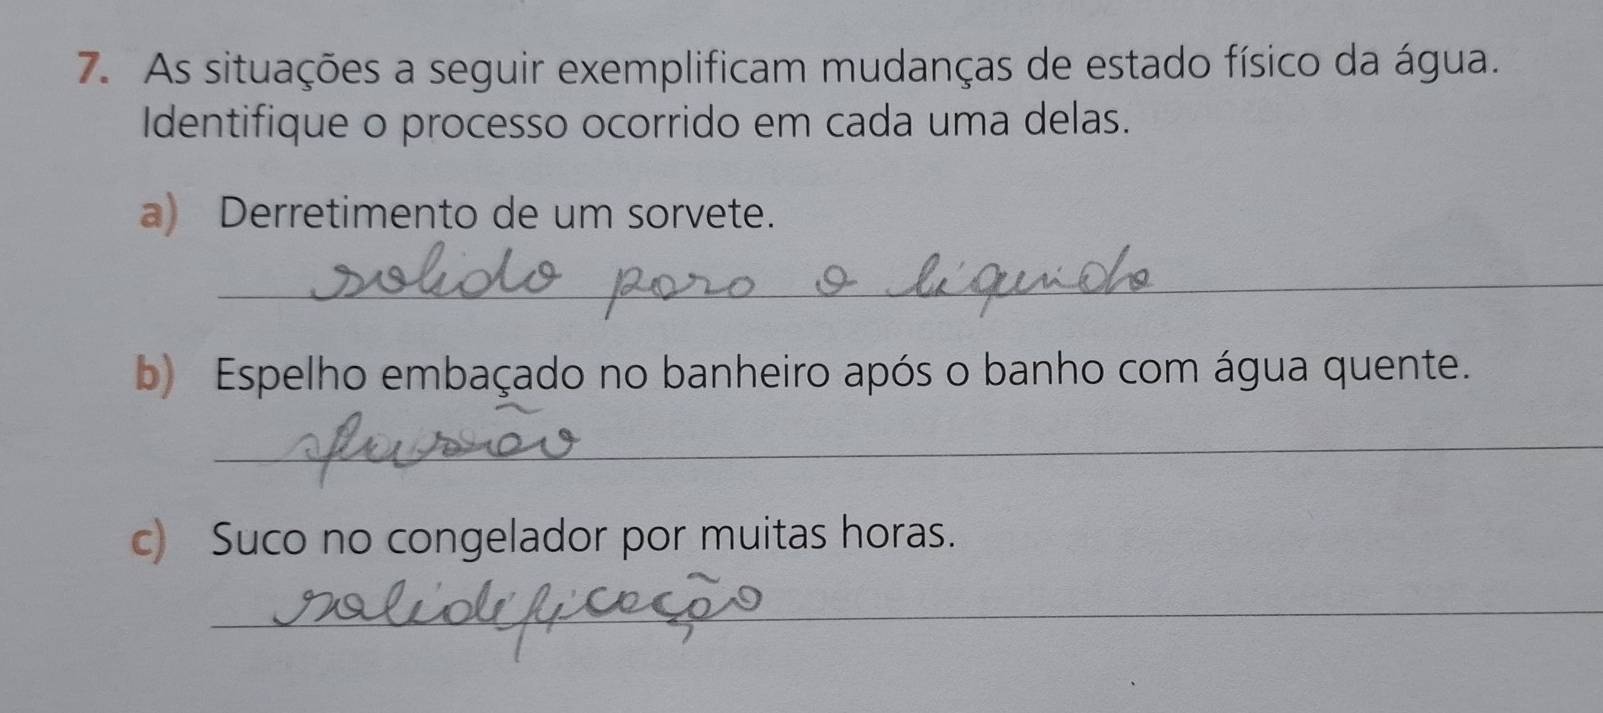 7. As situações a seguir exemplificam mudanças de estado físico da água.
Identifique o processo ocorrido em cada uma delas.
a) Derretimento de um sorvete.
solido para o liquido
b) Espelho embaçado no banheiro após o banho com água quente.
fussão
c) Suco no congelador por muitas horas.
solidificação